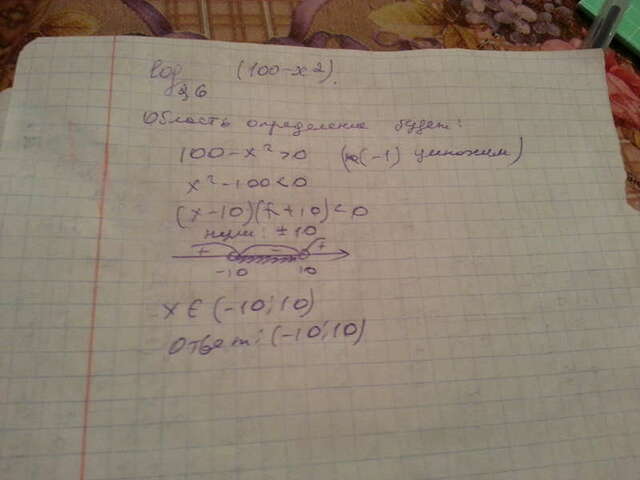 log₃,₆ (100-x²).
Область определение будет:
100-x²>0 ( (-1) умножим)
x²-100<0
(x-10)(x+10)<0
нули: ±10
+ - +
-10 10
x ∈ (-10;10)
Ответ: (-10;10)